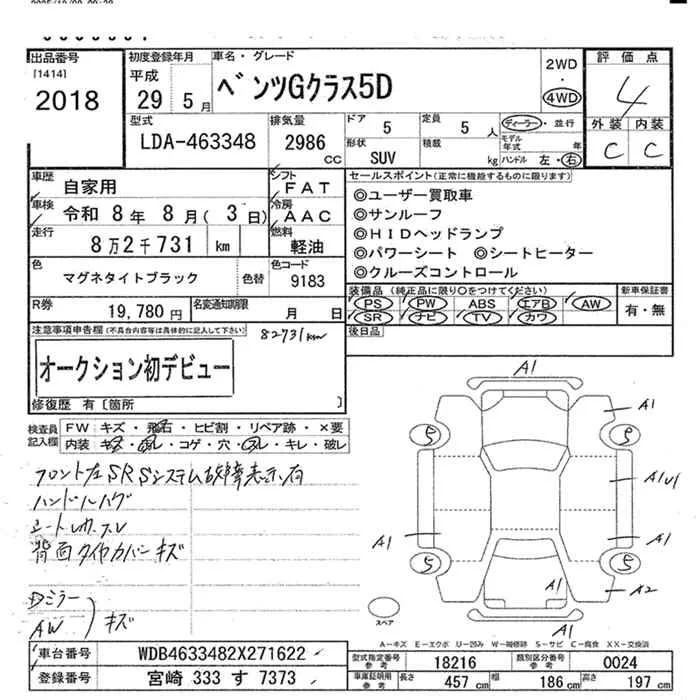 出品番号
[1414]
2018
初度登録年月
平成
29 5月
車名・グレード
ベンツGクラス5D
2WD
・
4WD
評価点
4
外装 内装
C C
型式
LDA-463348
排気量
2986
cc
ドア 5
定員 5 人
形状 SUV
積載 kg
ディーラー・並行
モデル年式 年
ハンドル 左・右
車歴 自家用
シフト FAT
車検 令和 8年 8月( 3日)
冷房 AAC
走行 8万2千731 km
燃料 軽油
色 マグネタイトブラック 色替
色コード 9183
R券 19,780円
名変通知期限 月 日
セールスポイント(正常に機能するものに限ります)
◎ユーザー買取車
◎サンルーフ
◎HIDヘッドランプ
◎パワーシート ◎シートヒーター
◎クルーズコントロール
装備品(純正品に限り○をつけてください)
PS PW ABS エアB AW
SR ナビ TV カワ
新車保証書
有・無
後日品
注意事項申告欄(不具合内容等は具体的に記入して下さい)
82731km
オークション初デビュー
修復歴 有〔箇所 〕
検査員記入欄
FW キズ・飛石・ヒビ割・リペア跡・×要
内装 キズ・汚レ・コゲ・穴・凹レ・キレ・破レ
フロント左SRSシステム故障表示有
ハンドルハゲ
シートレザースレ
背面タイヤカバーキズ
Dミラー
AW
キズ
A1
A1
5 5
A1U1
A1 A1
5 5
A1 A2
A1
スペア
A-キズ E-エクボ U-凹み W-補修跡 S-サビ C-腐食 XX-交換済
車台番号 WDB4633482X271622
登録番号 宮崎 333 す 7373
型式指定番号 参考 18216
類別区分番号 参考 0024
車庫証明用 参考 長さ 457 cm 幅 186 cm 高さ 197 cm